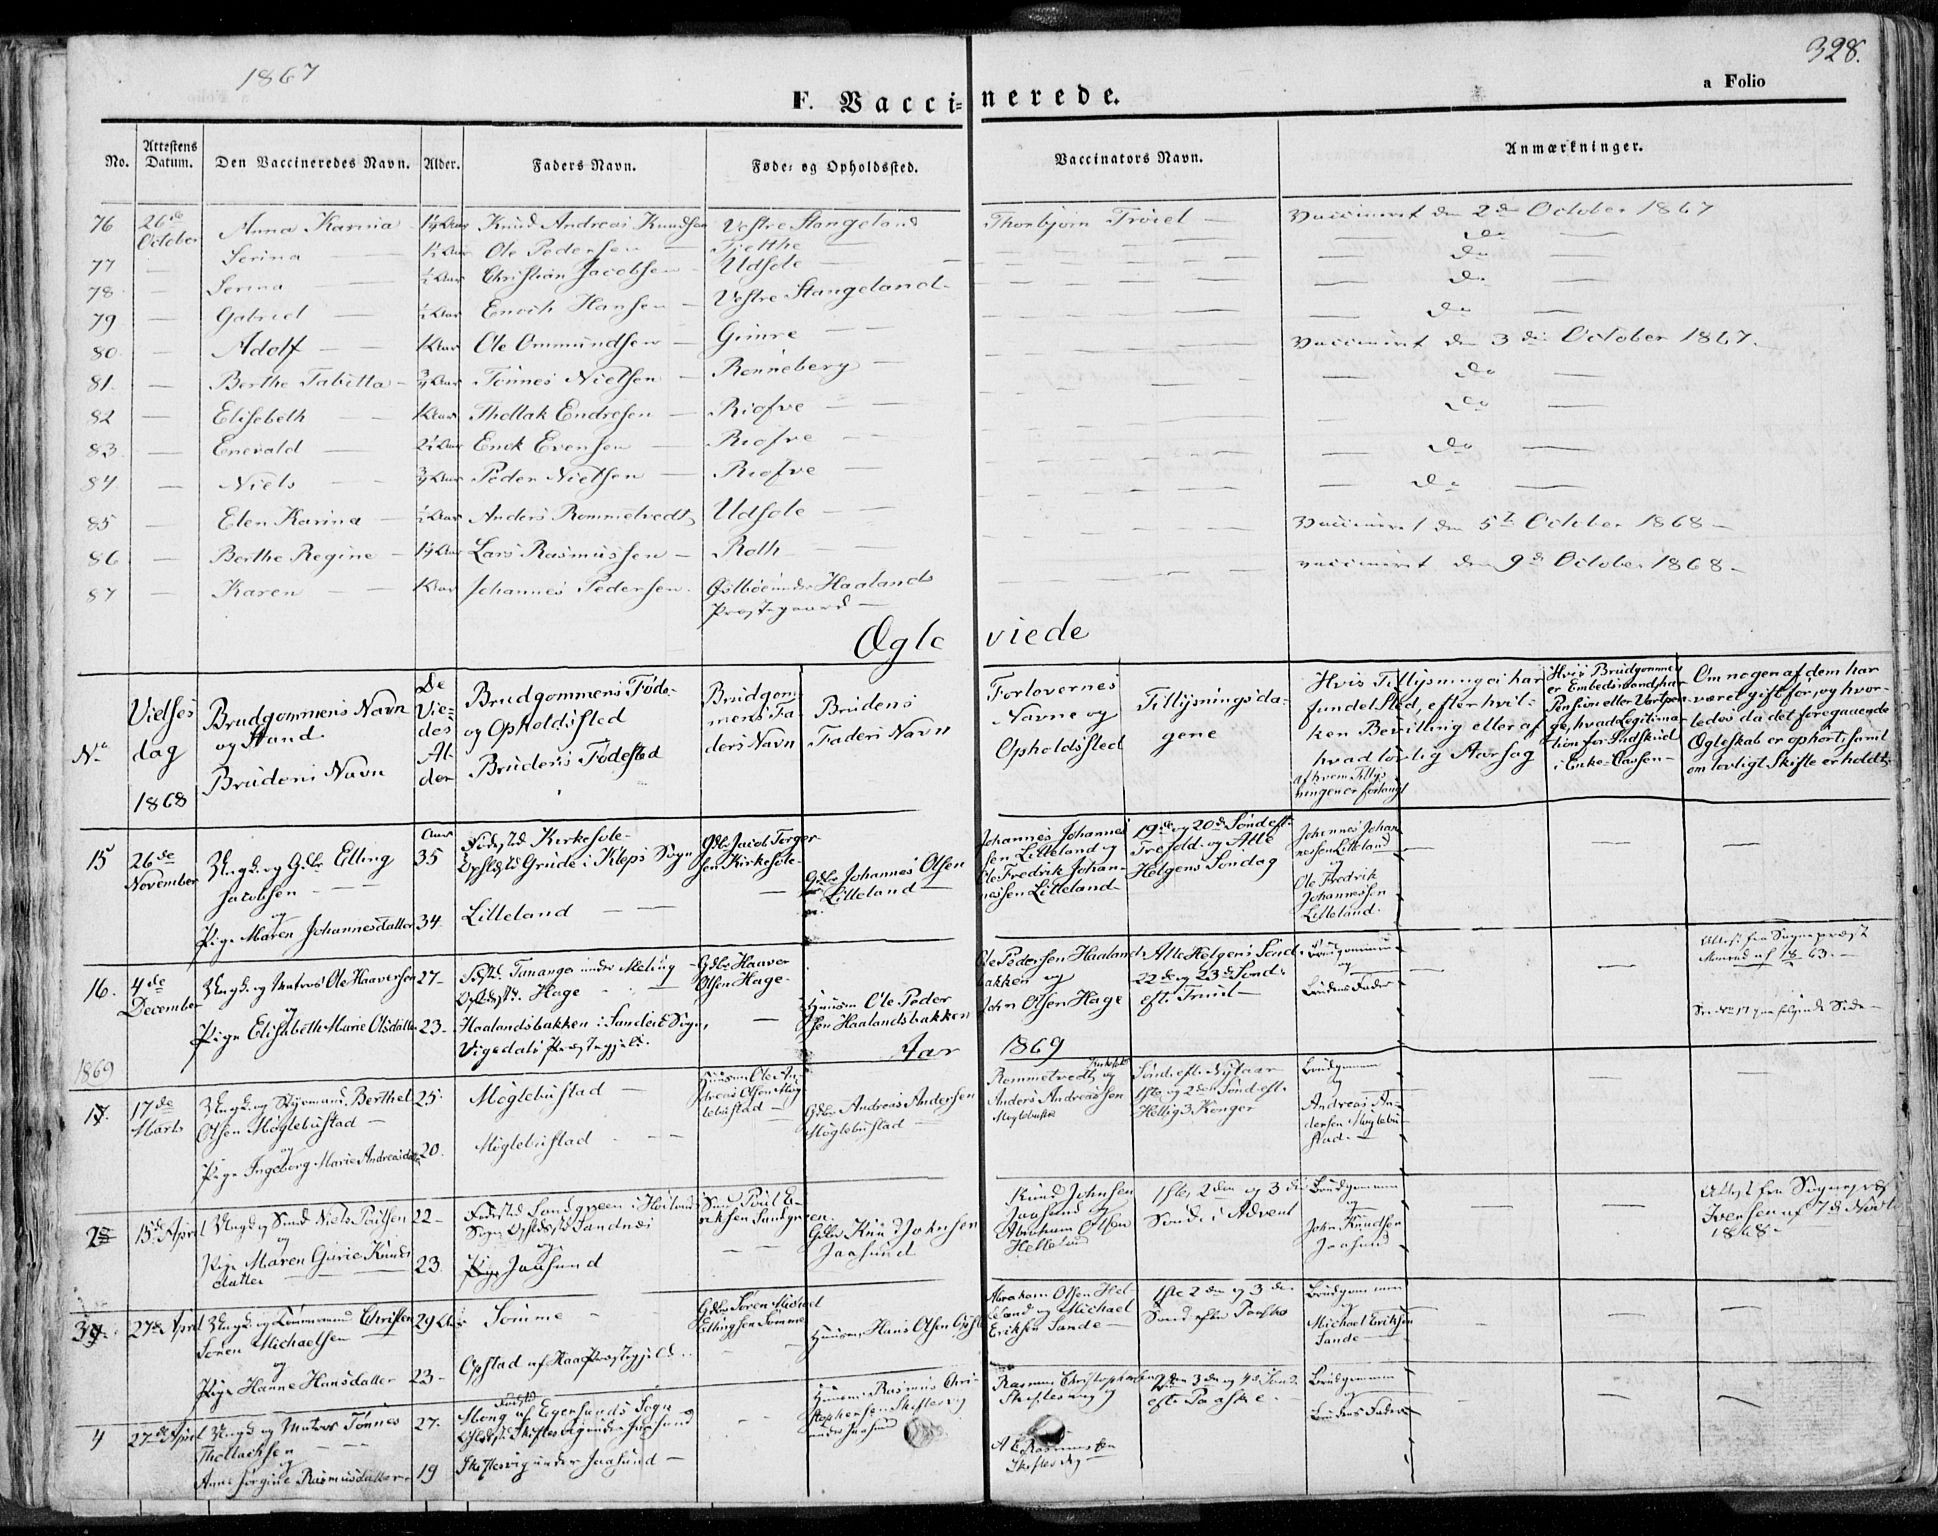 1867
328.
F. Vaccinerede.
a Folio
No. Attestens Datum. Den Vaccineredes Navn. Alder. Faders Navn. Føde- og Opholdssted. Vaccinators Navn. Anmærkninger.
76 26de October Anna Karina Knud Andreas Knudsen Vestre Stangeland Thorbjørn Trøiel — vaccineret den 2de October 1867
77 — Serina — Ole Pedersen — Tjetthe — Do —
78 — Serina — ½ Aar Christian Jacobsen — Udsole — Do —
79 — Gabriel — ½ Aar Enoch Hansen — Vestre Stangeland — Do —
80 — Adolf — 1 Aar Ole Ommundsen — Gimre — — Do —
81. — Berthe Tabitta — Tønnes Nielsen — Rønneberg — vaccineret den 3die October 1867.
82 — Elisebeth — 1 Aar Thollak Endresen — Riofve — — Do —
83. — Enevald — Enok Evensen — Riofve — — Do —
84. — Niels — Peder Nielsen — Riofve — — Do —
85 — Elen Karina — ½ Aar Anders Rommetvedt Udsole — — Do —
86 — Berthe Regine — Lars Rasmussen — Roth — vaccineret den 5te October 1868 —
87 — Karen — 1 Aar Johannes Pedersen. Østbøe under Haalands vaccineret den 9de October 1868 —
Præstegaard —
Ægteviede
No.
Vielses dag 1868
Brudgommens Navn og Stand. Brudens Navn
De Viedes Alder
Brudgommens Føde- og Opholdssted Brudens Fødested
Brudgommens Faders Navn
Brudens Faders Navn
Forlovernes Navne og Opholdssted
Tillysningsdagene
Hvis Tillysning ei har fundet Sted, efter hvilken Bevilling eller af hvad lovlig Aarsag
af hvem Tillysningen er forlangt
Hvis Brudgommen er Embedsmand, har Pension eller Vartpenge, hvad Legitimation for Indskud i Enke-Cassen —
Om nogen af dem har været gift før, og hvorledes da det foregaaende Ægteskab er ophørt, samt om lovligt Skifte er holdt.
15 26de November
Ungk. og Gdbr Elling Jacobsen — og
Pige Maren Johannesdatter
Aar 35
34.
Fødested Kirkesole —
Opholdsted Grude i Kleps Sogn
Lilleland — —
Gdbr Jacob Torgersen Kirkesole —
Gdbr Johannes Olsen Lilleland —
Johannes Johannessen Lilleland og
Ole Fredrik Johannessen Lilleland —
19de og 20de Sønd eft. Trefold. og Alle Helgens Søndag
Johannes Johannessen Lilleland og Ole Fredrik Johannessen Lilleland.
16. 4de December
Ungk. og Matros Ole Haaversen og
Pige Elisabeth Marie Olsdatter
27 —
23.
Fødst. Tananger under Meling —
Opholdst. Hage —
Haalandsbakken i Sandeid Sogn,
Vigedals Præstegjeld.
Gdbr Haaver Olsen Hage —
Huusm Ole Pedersen Haalandsbakken
Ole Pedersen Haalandsbakken og
John Olsen Hage
Alle Helgens Sønd. 22de og 23de Sønd. eft. Trind —
Brudgommen og Brudens Fader
Attest fra Sognepræst Monrad af 18 63. —
Se No 17 paa følgende Side —
Aar 1869
1869
1. 17de Marts
Ungk. og Styrmand Berthel Olsen Møglebustad — og
Pige Ingeborg Marie Andreasdatter
25.
20.
Møglebustad —
Møglebustad — —
Huusm Ole Andreas Olsen Møglebustad —
Gdbr Andreas Andersen Møglebustad —
Rommetvedt og
Anders Andreassen Møglebustad
Sønd. eft. Nytaar 1ste og 2den Sønd eft. Hellig 3 Konger
Brudgommen og Andreas Andersen Møglebustad. —
2 15de April
Ungk. og Smed Niels Poulsen og
Pige Maren Gurie Knudsdatter
22 —
23.
Fødested Sandgreen i Høilands Sogn, Opholdsted Sandnæs og
Jaasund
Smed Poul Eriksen Sandgreen
Gdbr Knud Johnsen Jaasund
Knud Johnsen Jaasund og
Abraham Olsen Helleland
1ste, 2den og 3die Sønd. i Advent
Brudgommen og John Knudsen Jaasund
Attest fra Sognepræst Ivensen af 7de Novbr 1868 —
3 27de April
Ungk. og Tømmermand Christen Søren Michaelsen og
Pige Hanne Hansdatter
29 Aar
23 —
Sømme —
Opstad af Haa Præstegjeld —
Gdbr Søren Michael Ellingsen Sømme
Huusm Hans Olsen Opstad
Abraham Olsen Helleland og Michael Eriksen Sande —
1ste 2den og 3die Sønd efter Paaske
Brudgommen og Michael Eriksen Sande —
4 27de April
Ungk. og Matros Tønnes Thollachsen og
Anne Jorgine Rasmusdatter
27.
19
Fødested Mong af Egersunds Sogn
Opholdst. Skiftesvig under Jaasund
Skiftesvig under Jaasund —
Huusm Rasmus Christophersen Skiftesvig under Jaasund
Rasmus Christophersen Skiftesvig og
Rasmussen Skiftesvig —
2den 3die og 4de Sønd. eft. Paaske.
Brudgommen og Brudens Fader